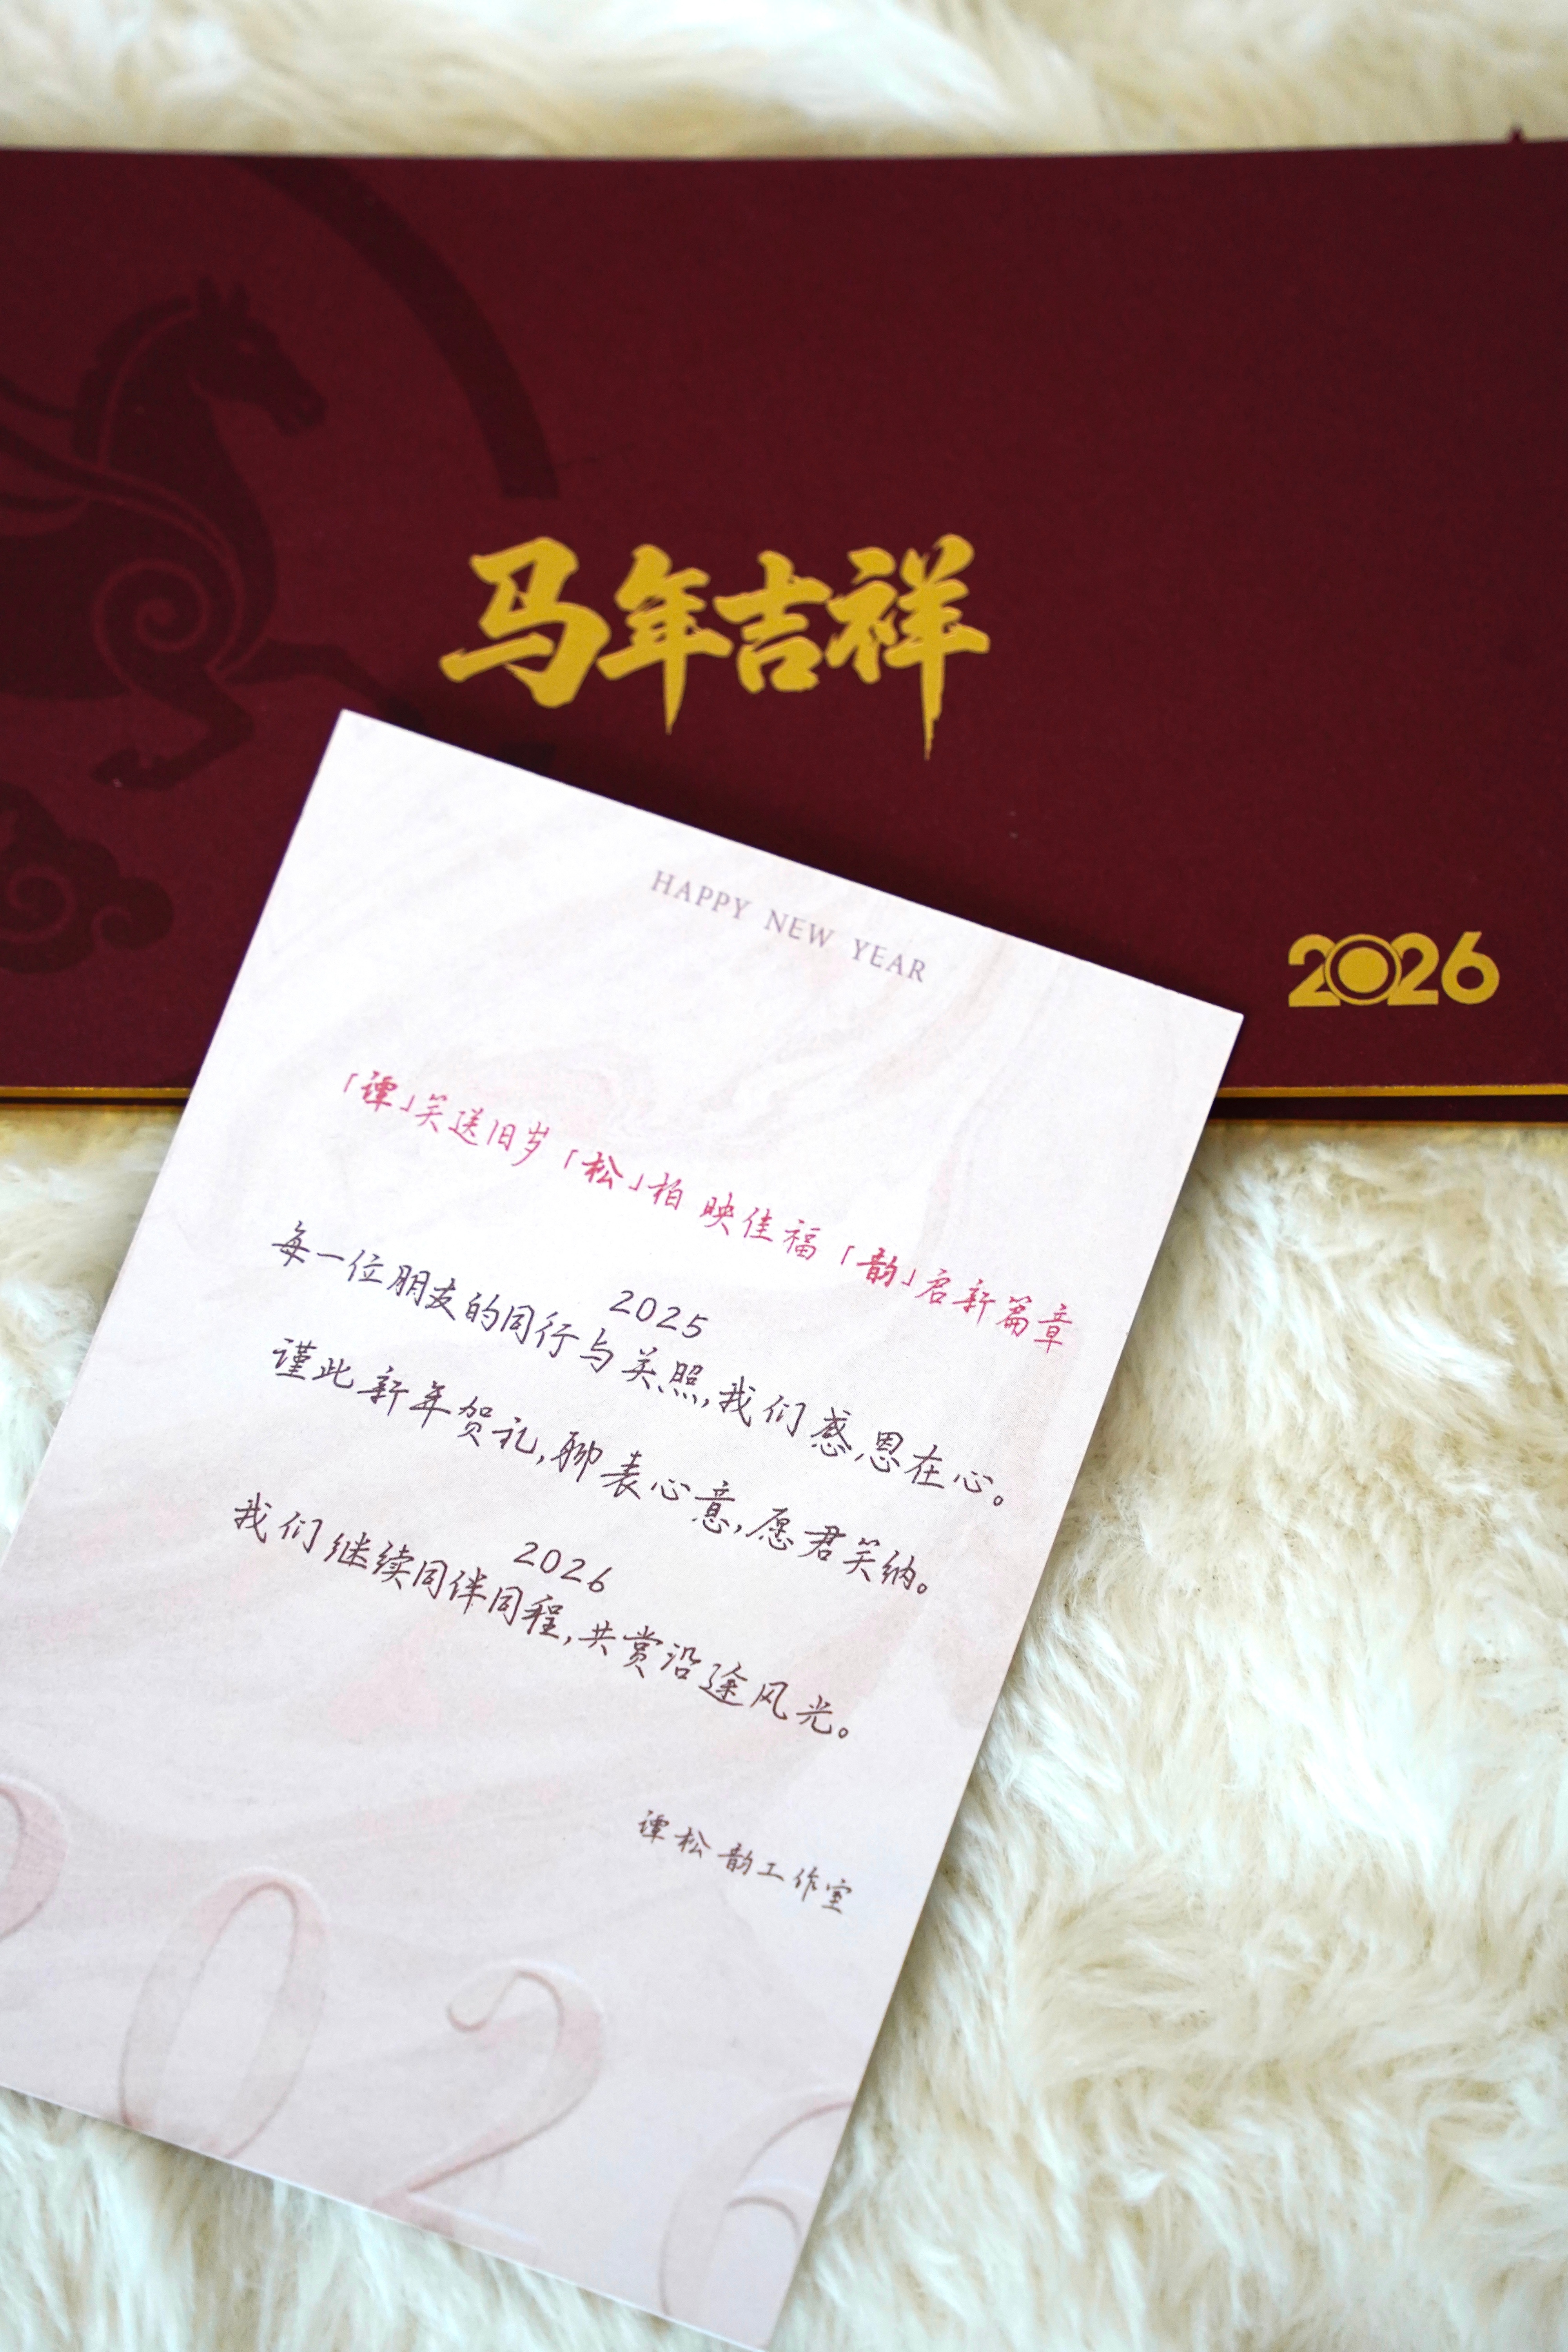 马年吉祥
2026
HAPPY NEW YEAR
「谭」笑送旧岁「松」柏映佳福「韵」启新篇章
2025
每一位朋友的同行与关照,我们感恩在心。
谨此新年贺礼,聊表心意,愿君笑纳。
2026
我们继续同伴同程,共赏沿途风光。
谭松韵工作室
2026